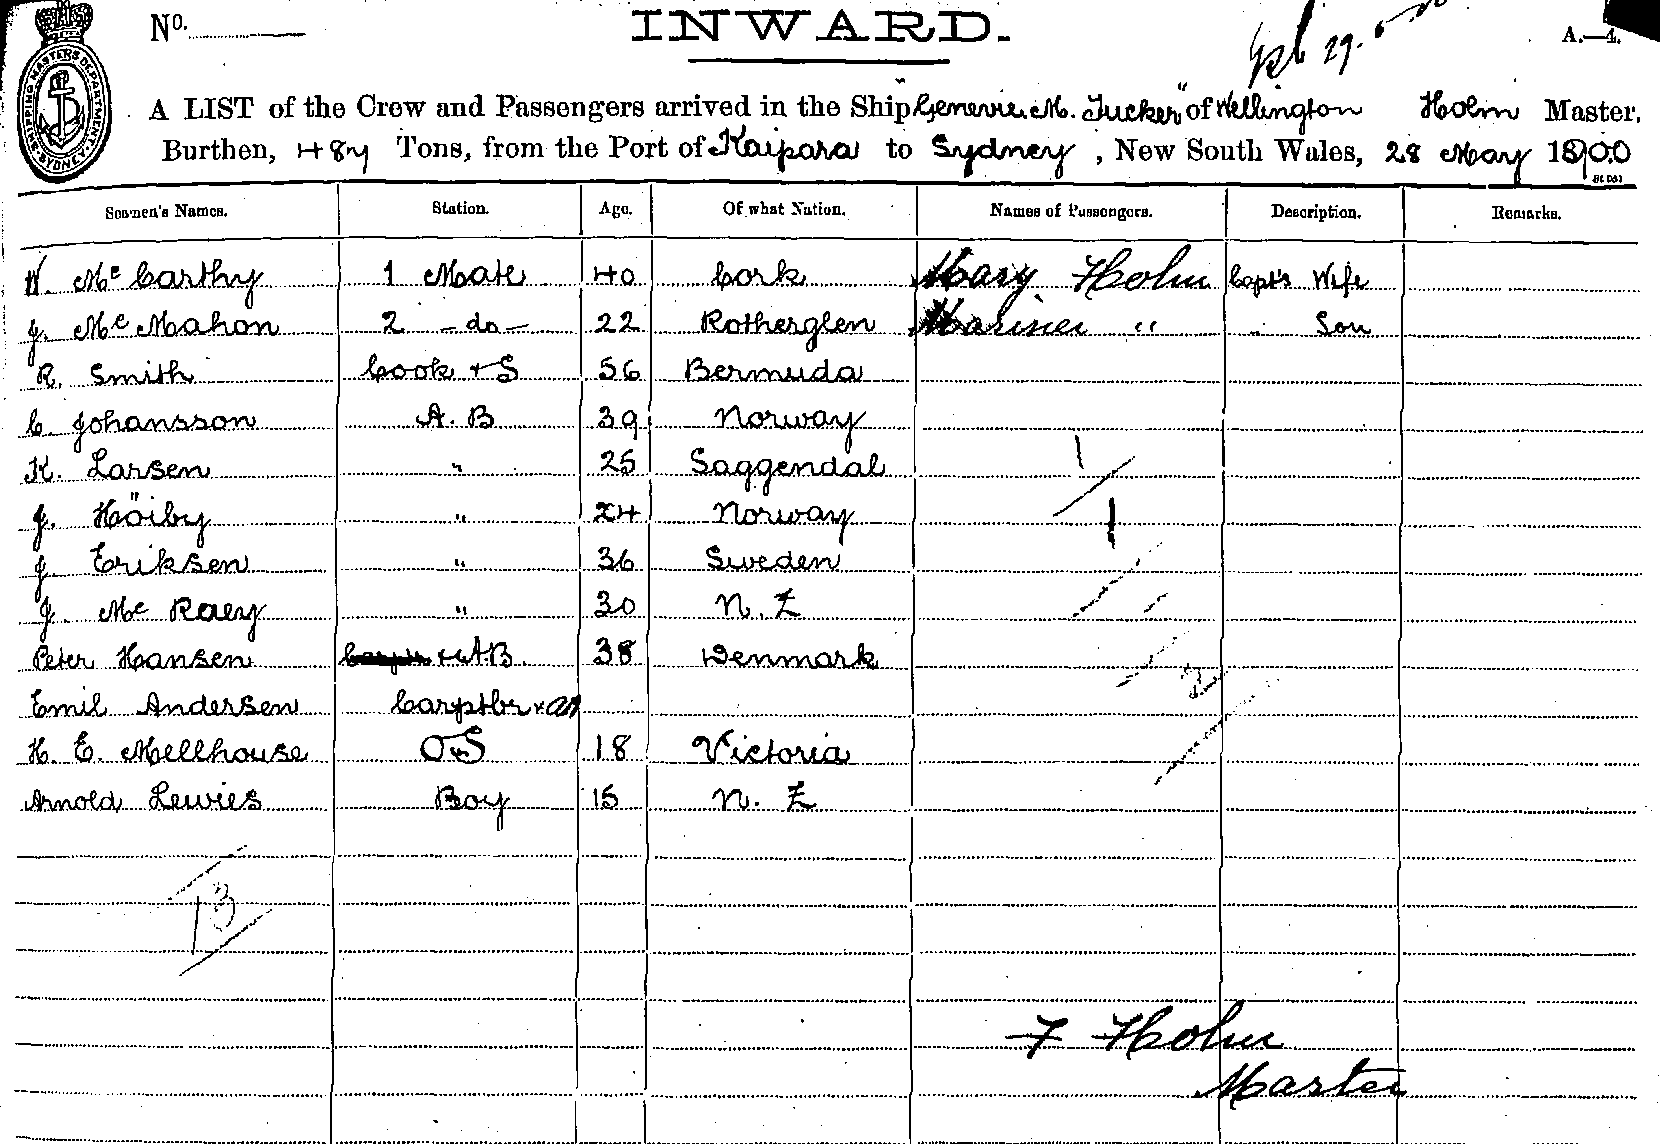 No.
INWARD.
A.—4.
SHIPPING MASTERS DEPARTMENT. SYDNEY.
A LIST of the Crew and Passengers arrived in the Ship "Genevie. M. Tucker" of Wellington Holm Master,
Burthen, 487 Tons, from the Port of Kaipara to Sydney, New South Wales, 28 May 1900
Seamen's Names. Station. Age. Of what Nation. Names of Passengers. Description. Remarks.
W. Mc Carthy 1 Mate 40 Cork Mary Holm Capt's Wife
J. Mc Mahon 2 -do- 22 Rotherglen Mariner " " Son
R. Smith Cook + S 56 Bermuda
C. Johansson A. B 39 Norway
K. Larsen " 25 Saggendal
J. Höiby " 24 Norway
J. Eriksen " 36 Sweden
J. Mc Raey " 30 N. Z
Peter Hansen A.B. 38 Denmark
Emil Andersen
H. E. Mellhouse O.S 18 Victoria
Arnold Lewies Boy 15 N. Z
2
13
F Holm
Master